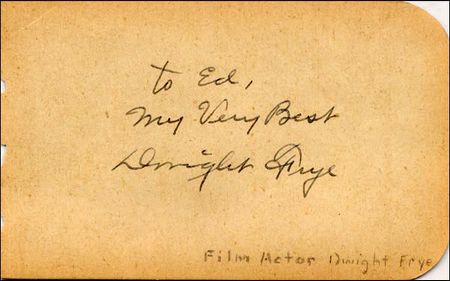 to Ed,
My Very Best
Dwight Frye
Film Actor Dwight Frye